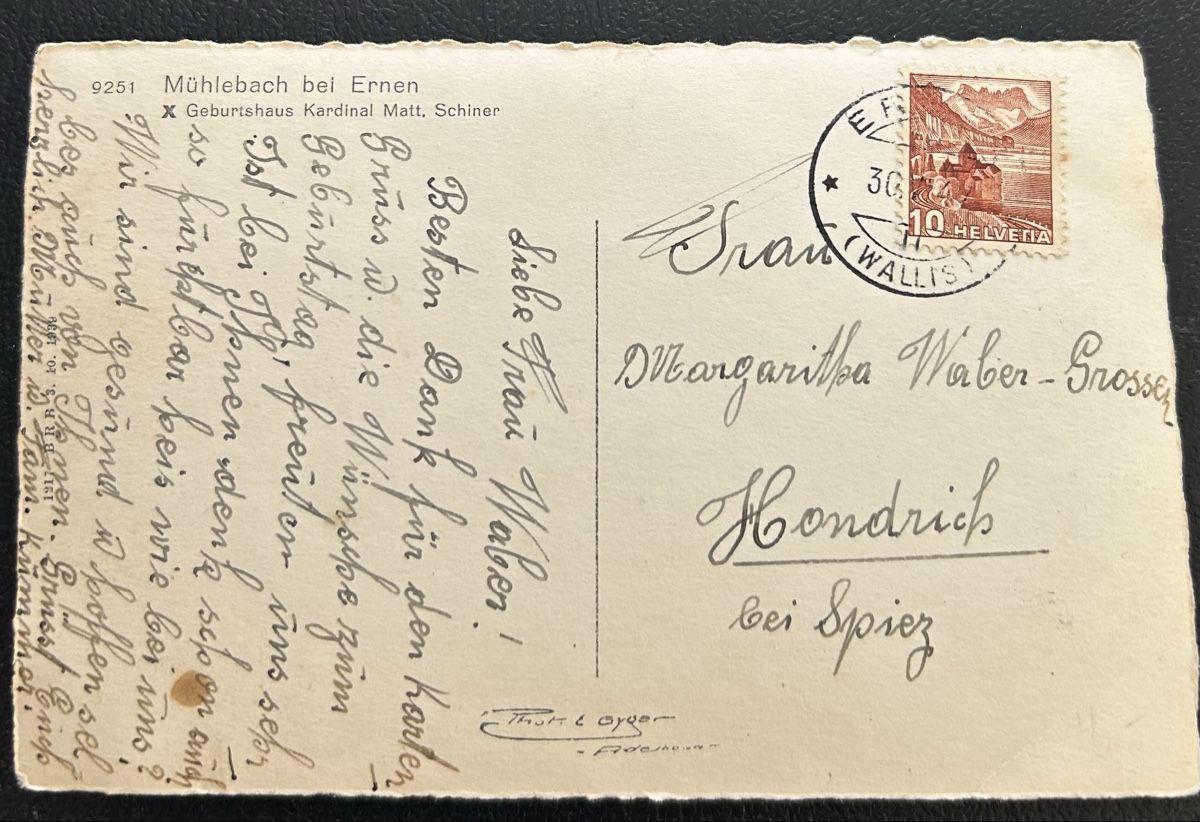 9251 Mühlebach bei Ernen
X Geburtshaus Kardinal Matt. Schiner
Liebe Frau Waber!
Besten Dank für den Karten
Gruss u. die Wünsche zum
Geburtstag, freuten uns sehr
Ist bei Ihnen denk schon auch
so furchtbar heis wie bei uns?
Wir sind gesund u hoffen sel
bes auch von Ihnen. Grüsst Euch
herzlich Mutter u. Fam.
1917 BRB 3. 10. 1939
Frau
Margaritha Waber-Grossen
Hondrich
bei Spiez
Phot. E Gyger
- Adelboden -
30
(WALLIS)
10 HELVETIA